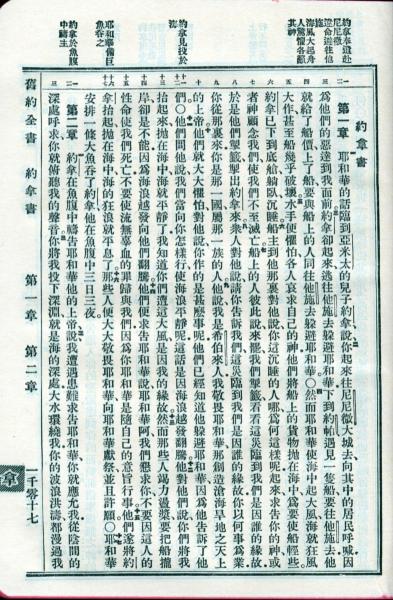 約拿奉遣赴
尼尼微
違命遁往他
施
海風大起舟
人驚懼各籲
其神
約拿見投於
海
耶和華備巨
魚吞之
約拿於魚腹
中禱主
約拿書
第一章 耶和華的話臨到亞米太的兒子約拿說你起來往尼尼微大城去向其中的居民呼喊因
為他們的惡達到我面前約拿卻起來逃往他施去躲避耶和華下到約帕遇見一隻船要往他施去他
就給了船價上了船要與船上的人同往他施去躲避耶和華○然而耶和華使海中起大風海就狂風
大作甚至船幾乎破壞水手便懼怕各人哀求自己的神他們將船上的貨物拋在海中爲要使船輕些
約拿已下到底艙躺臥沉睡船主到他那裏對他說你這沉睡的人哪爲何這樣呢起來求告你的神或
者神顧念我們使我們不至滅亡船上的人彼此說來罷我們掣籤看看這災臨到我們是因誰的緣故
於是他們掣籤掣出約拿來衆人對他說請你告訴我們這災臨到我們是因誰的緣故你以何事爲業
你從那裏來你是那一國屬那一族的人他說我是希伯來人我敬畏耶和華那創造滄海旱地之天上
的上帝他們就大大懼怕對他說你作的是甚麼事呢他們已經知道他躲避耶和華因他告訴了他
們○他們問他說我們當向你怎樣行使海浪平靜呢這話是因海浪越發翻騰他對他們說你們將我
抬起來拋在海中海就平靜了我知道你們遭這大風是因我的緣故然而那些人竭力盪槳要把船攏
岸卻是不能因爲海浪越發向他們翻騰他們便求告耶和華說耶和華阿我們懇求你不要因這人的
性命使我們死亡不要使流無辜血的罪歸與我們因爲你耶和華是隨自己的意旨行事他們遂將約
拿抬起拋在海中海的狂浪就平息了那些人便大大敬畏耶和華向耶和華獻祭並且許願○耶和華
安排一條大魚吞了約拿他在魚腹中三日三夜
第二章 約拿在魚腹中禱告耶和華他的上帝說我遭遇患難求告耶和華你就應允我從陰間的
深處呼求你就俯聽我的聲音你將我投下深淵就是海的深處大水環繞我你的波浪洪濤都漫過我
舊約全書 約拿書 第一章 第二章 一千零十七
拿